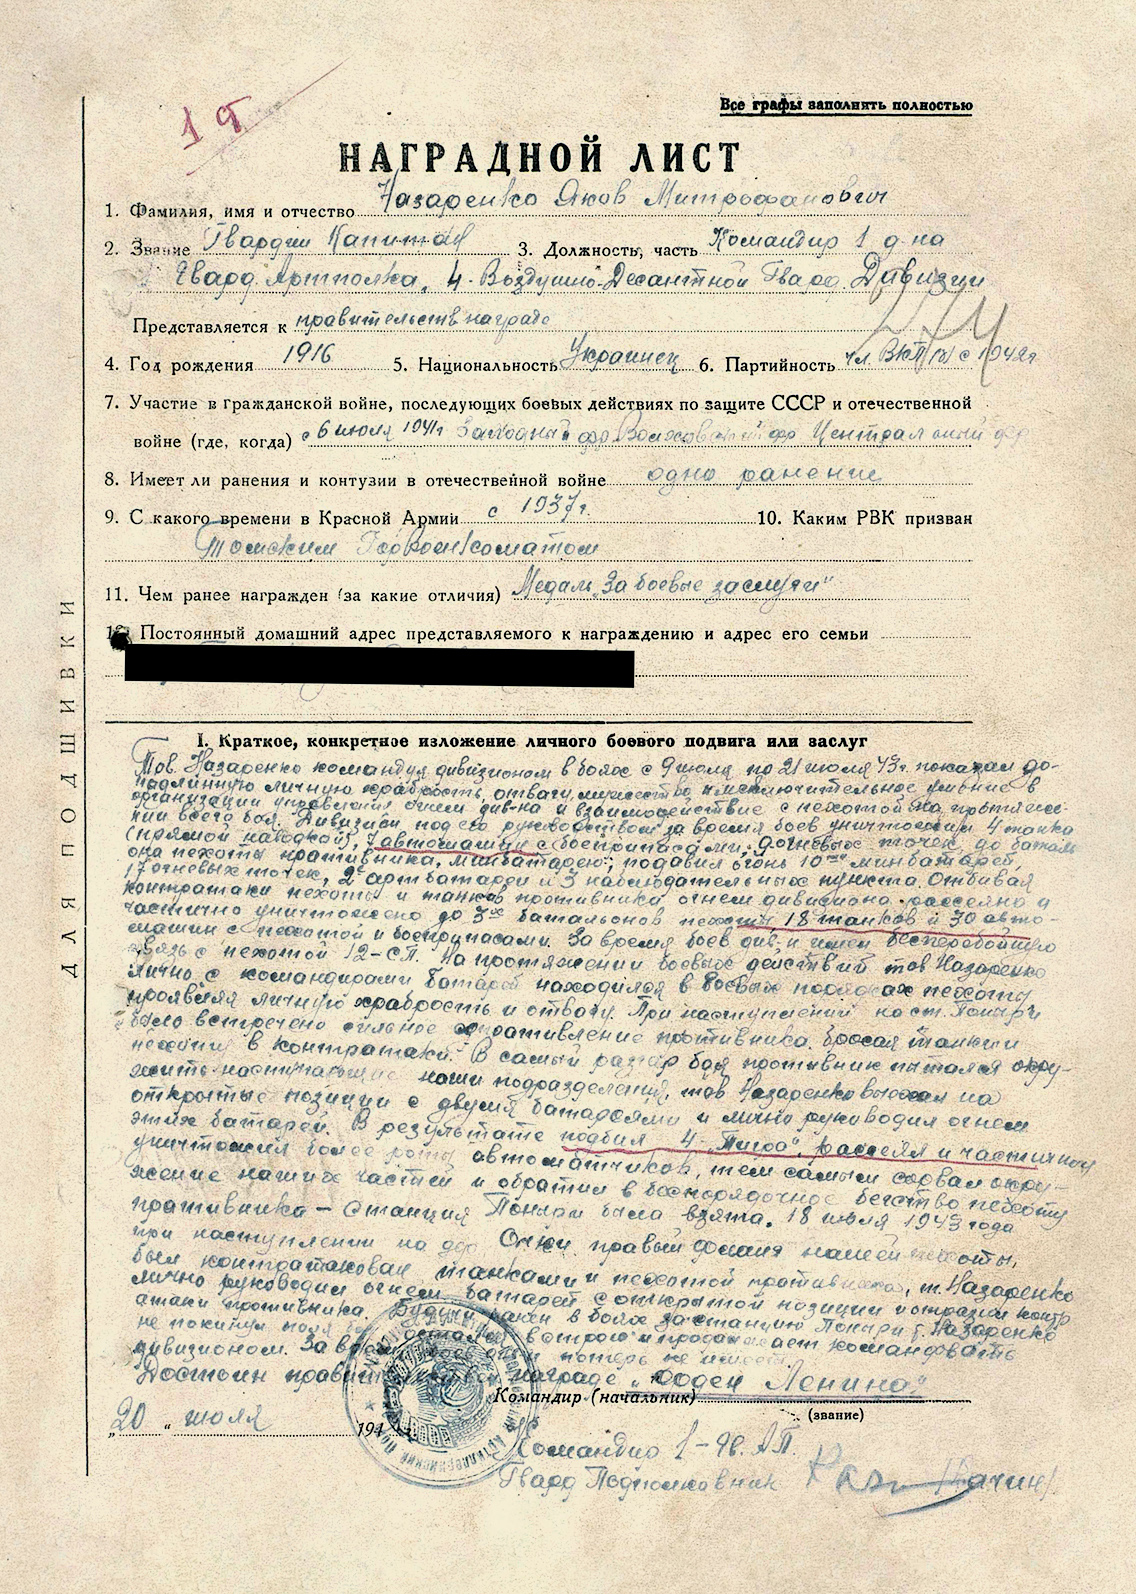 1
Все графы заполнять полностью
НАГРАДНОЙ ЛИСТ
1. Фамилия, имя и отчество Назаренко Яков Митрофанович
2. Звание Гвардии Капитан 3. Должность, часть Командир 1 д-на
Гвард. Артполка, 4-Воздушно-Десантной Гвард. Дивизии
Представляется к правительств награде
4. Год рождения 1916 5. Национальность Украинец 6. Партийность чл ВКП(б) с 1942г
7. Участие в гражданской войне, последующих боевых действиях по защите СССР и отечественной
войне (где, когда) с 6 июля 1941г Западный фр Волховский фр Центральный фр
8. Имеет ли ранения и контузии в отечественной войне одно ранение
9. С какого времени в Красной Армии с 1937г. 10. Каким РВК призван
Томским Горвоенкоматом
11. Чем ранее награжден (за какие отличия) Медаль „За боевые заслуги"
12. Постоянный домашний адрес представляемого к награждению и адрес его семьи
ДЛЯ ПОДШИВКИ
I. Краткое, конкретное изложение личного боевого подвига или заслуг
Тов. Назаренко командуя дивизионом в боях с 9 июля по 21 июля 43г. показал до-
подлинную личную храбрость, отвагу, мужество и исключительное умение в
организации управления огнем див-на и взаимодействие с пехотой на протяже-
нии всего боя. Дивизион под его руководством за время боев уничтожил 4 танка
(прямой наводкой), 7 автомашин с боеприпасами, 9 огневых точек, до баталь
она пехоты противника, минбатарею; подавил огонь 10ти минбатарей,
17 огневых точек, 2х артбатарей и 3 наблюдательных пункта. Отбивая
контратаки пехоты и танков противника огнем дивизиона рассеяно и
частично уничтожено до 3х батальонов пехоты 18 танков и 30 авто-
машин с пехотой и боеприпасами. За время боев див-н имел бесперебойную
связь с пехотой 12-СП. На протяжении боевых действий тов Назаренко
лично с командирами батарей находился в боевых порядках пехоты
проявляя личную храбрость и отвагу. При наступлении на ст. Поныри
было встречено сильное сопротивление противника, бросая танки и
пехоту в контратаки. В самый разгар боя противник пытался окру-
жить наступающие наши подразделения, тов Назаренко выехал на
открытые позиции с двумя батареями и лично руководил огнем
этих батарей. В результате подбил 4 „Тигра", рассеял и частично
уничтожил более роты автоматчиков, тем самым сорвал окру-
жение наших частей и обратил в беспорядочное бегство пехоту
противника – станция Поныри была взята. 18 июля 1943 года
при наступлении на дер Очки правый фланг нашей пехоты,
был контратакован танками и пехотой противника, т. Назаренко
лично руководил огнем батарей с открытой позиции и отразил контр
атаки противника. Будучи ранен в боях за станцию Поныри т. Назаренко
не покинул поля боя остался в строю и продолжает командовать
дивизионом. За время боев див-н потерь не имеет.
Достоин правительственной награде „Орден Ленина"
Командир (начальник)
(звание)
„20" июля 194
Командир 1-Гв. АП.
Гвард Подполковник